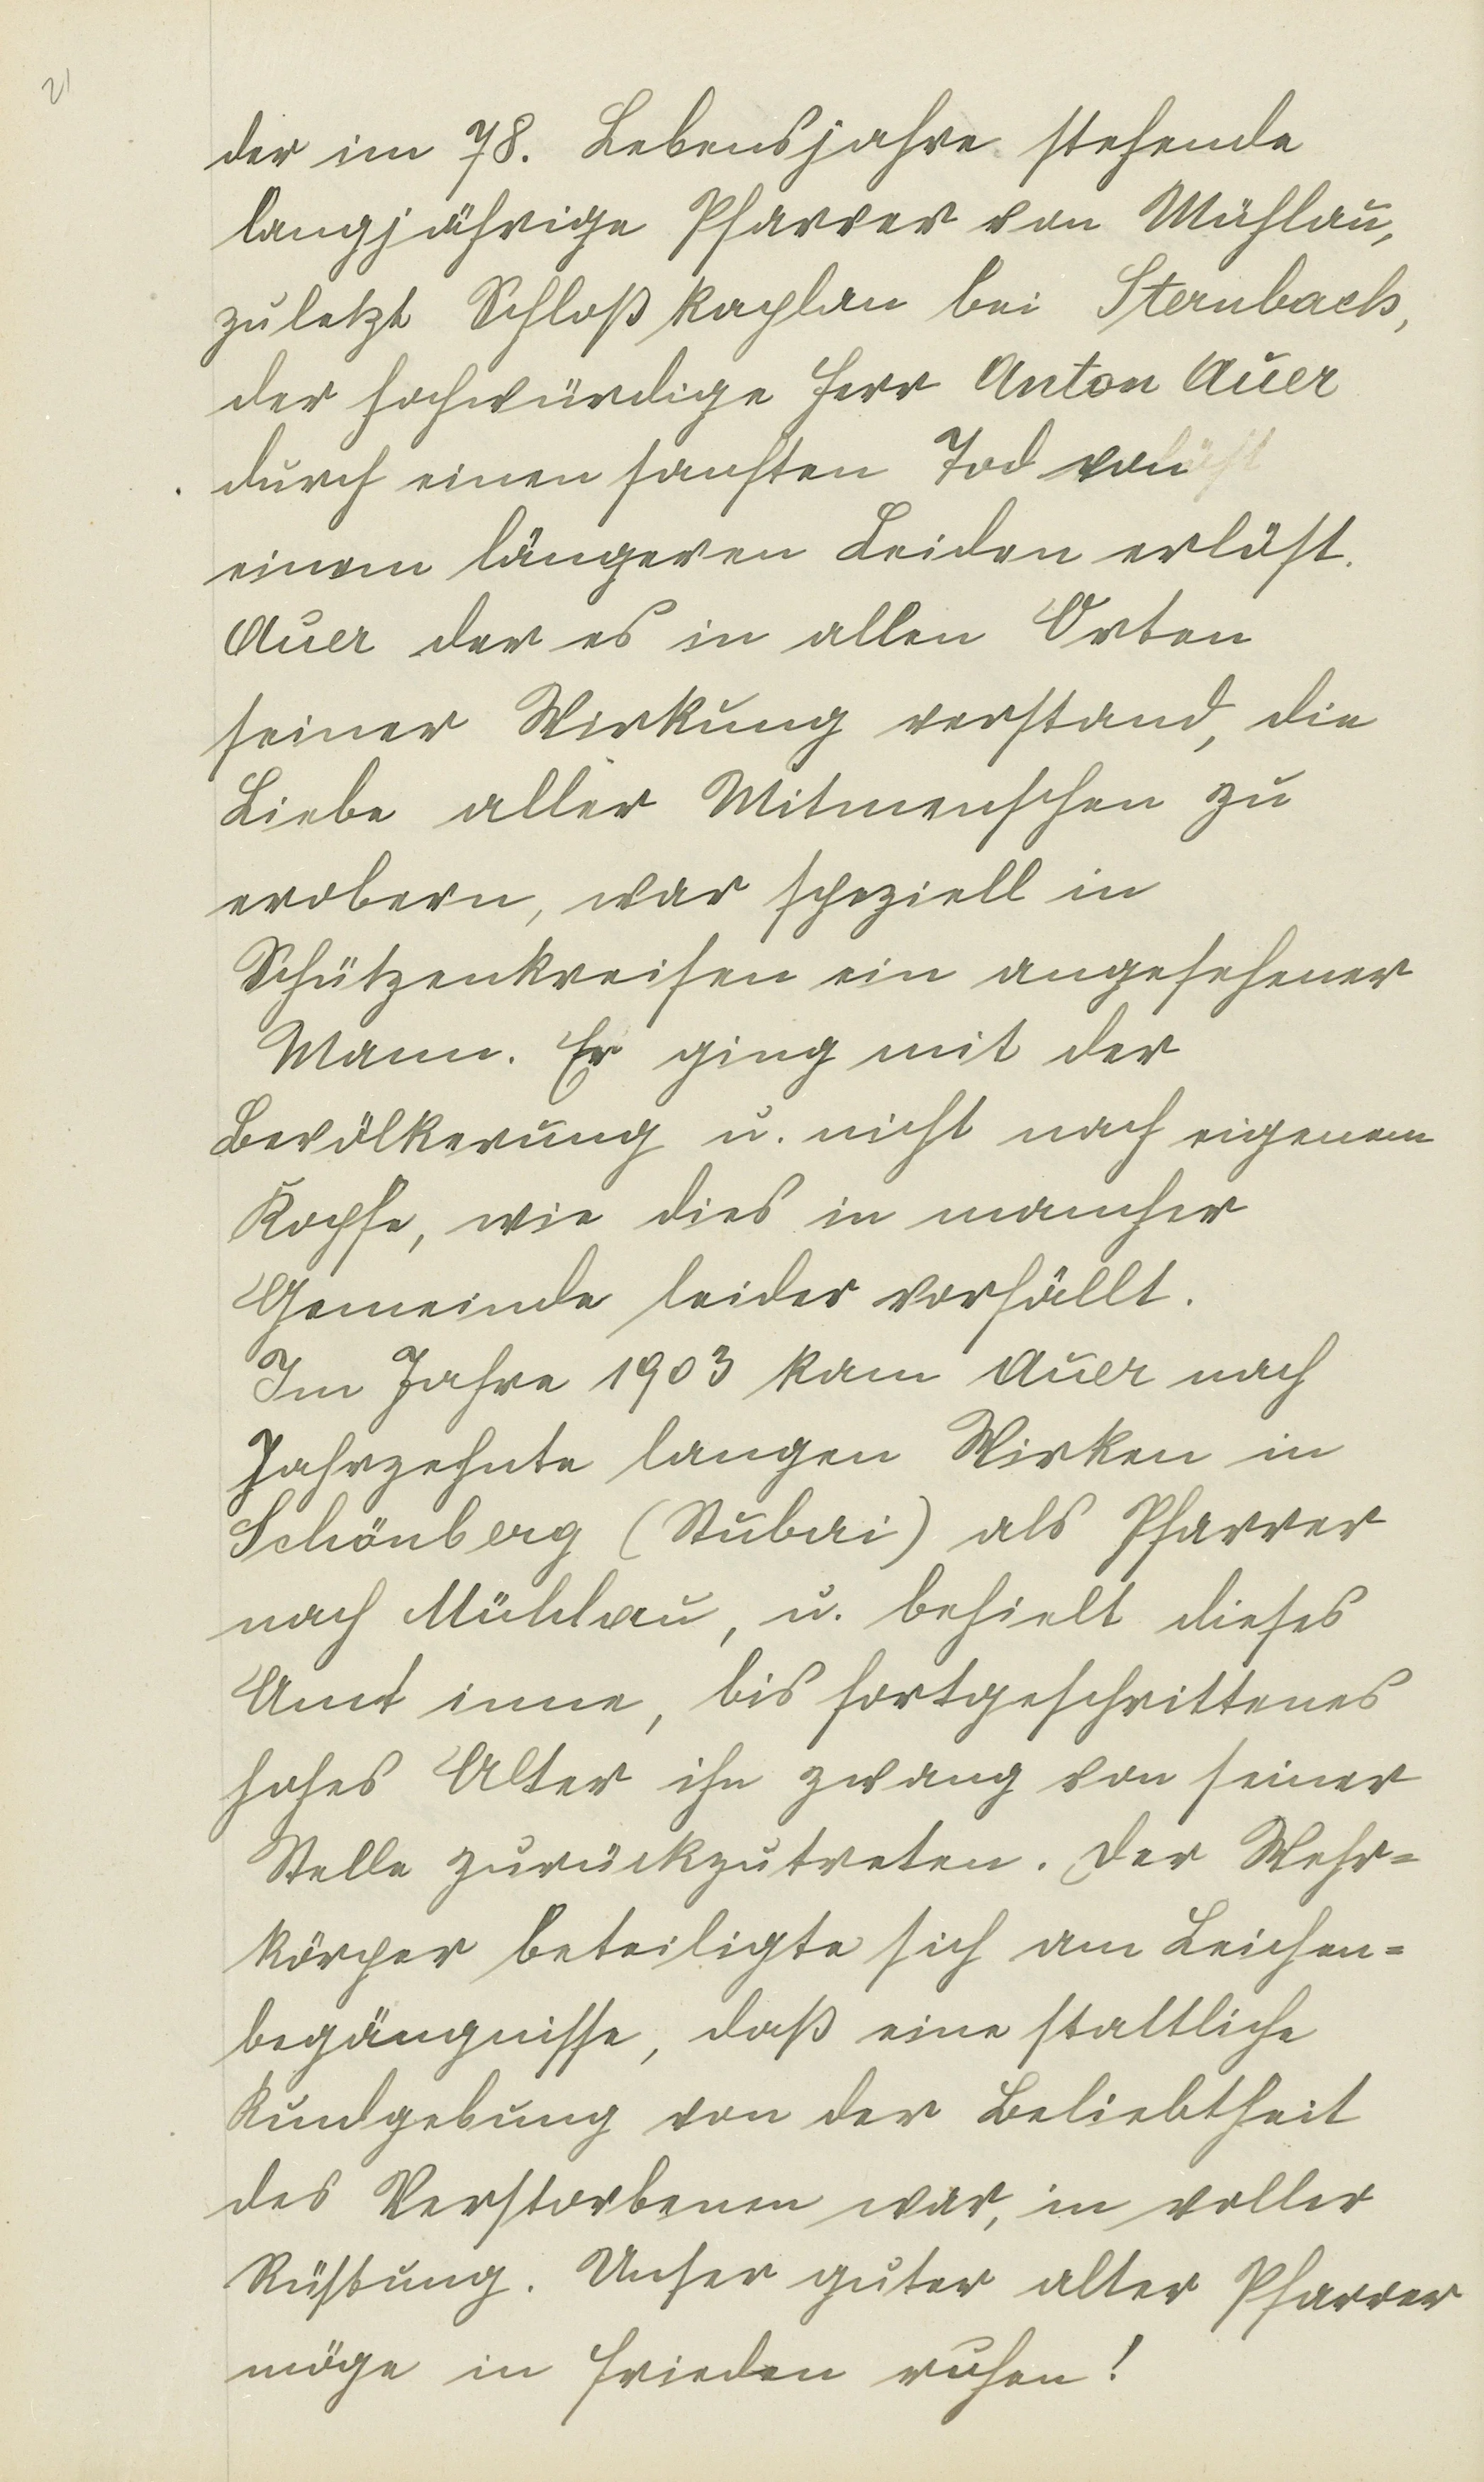 21
der im 78. Lebensjahre stehende
langjährige Pfarrer von Mühlau,
zuletzt Schloßkaplan bei Sternbach,
der hochwürdige Herr Anton Auer
durch einen sanften Tod von
einem längeren Leiden erlöst.
Auer der es in allen Orten
seiner Wirkung verstand, die
Liebe aller Mitmenschen zu
erobern, war speziell in
Schützenkreisen ein angesehener
Mann. Er ging mit der
Bevölkerung u. nicht nach eigenem
Kopfe, wie dies in mancher
Gemeinde leider vorfällt.
Im Jahre 1903 kam Auer nach
Jahrzehnte langen Wirken in
Schönberg (Stubai) als Pfarrer
nach Mühlau, u. behielt dieses
Amt inne, bis fortgeschrittenes
hohes Alter ihn zwang von seiner
Stelle zurückzutreten. Der Wehr=
körper beteiligte sich am Leichen=
begängnisse, daß eine stattliche
Kundgebung von der Beliebtheit
des Verstorbenen war, in voller
Rüstung. Unser guter alter Pfarrer
möge in Frieden ruhen!